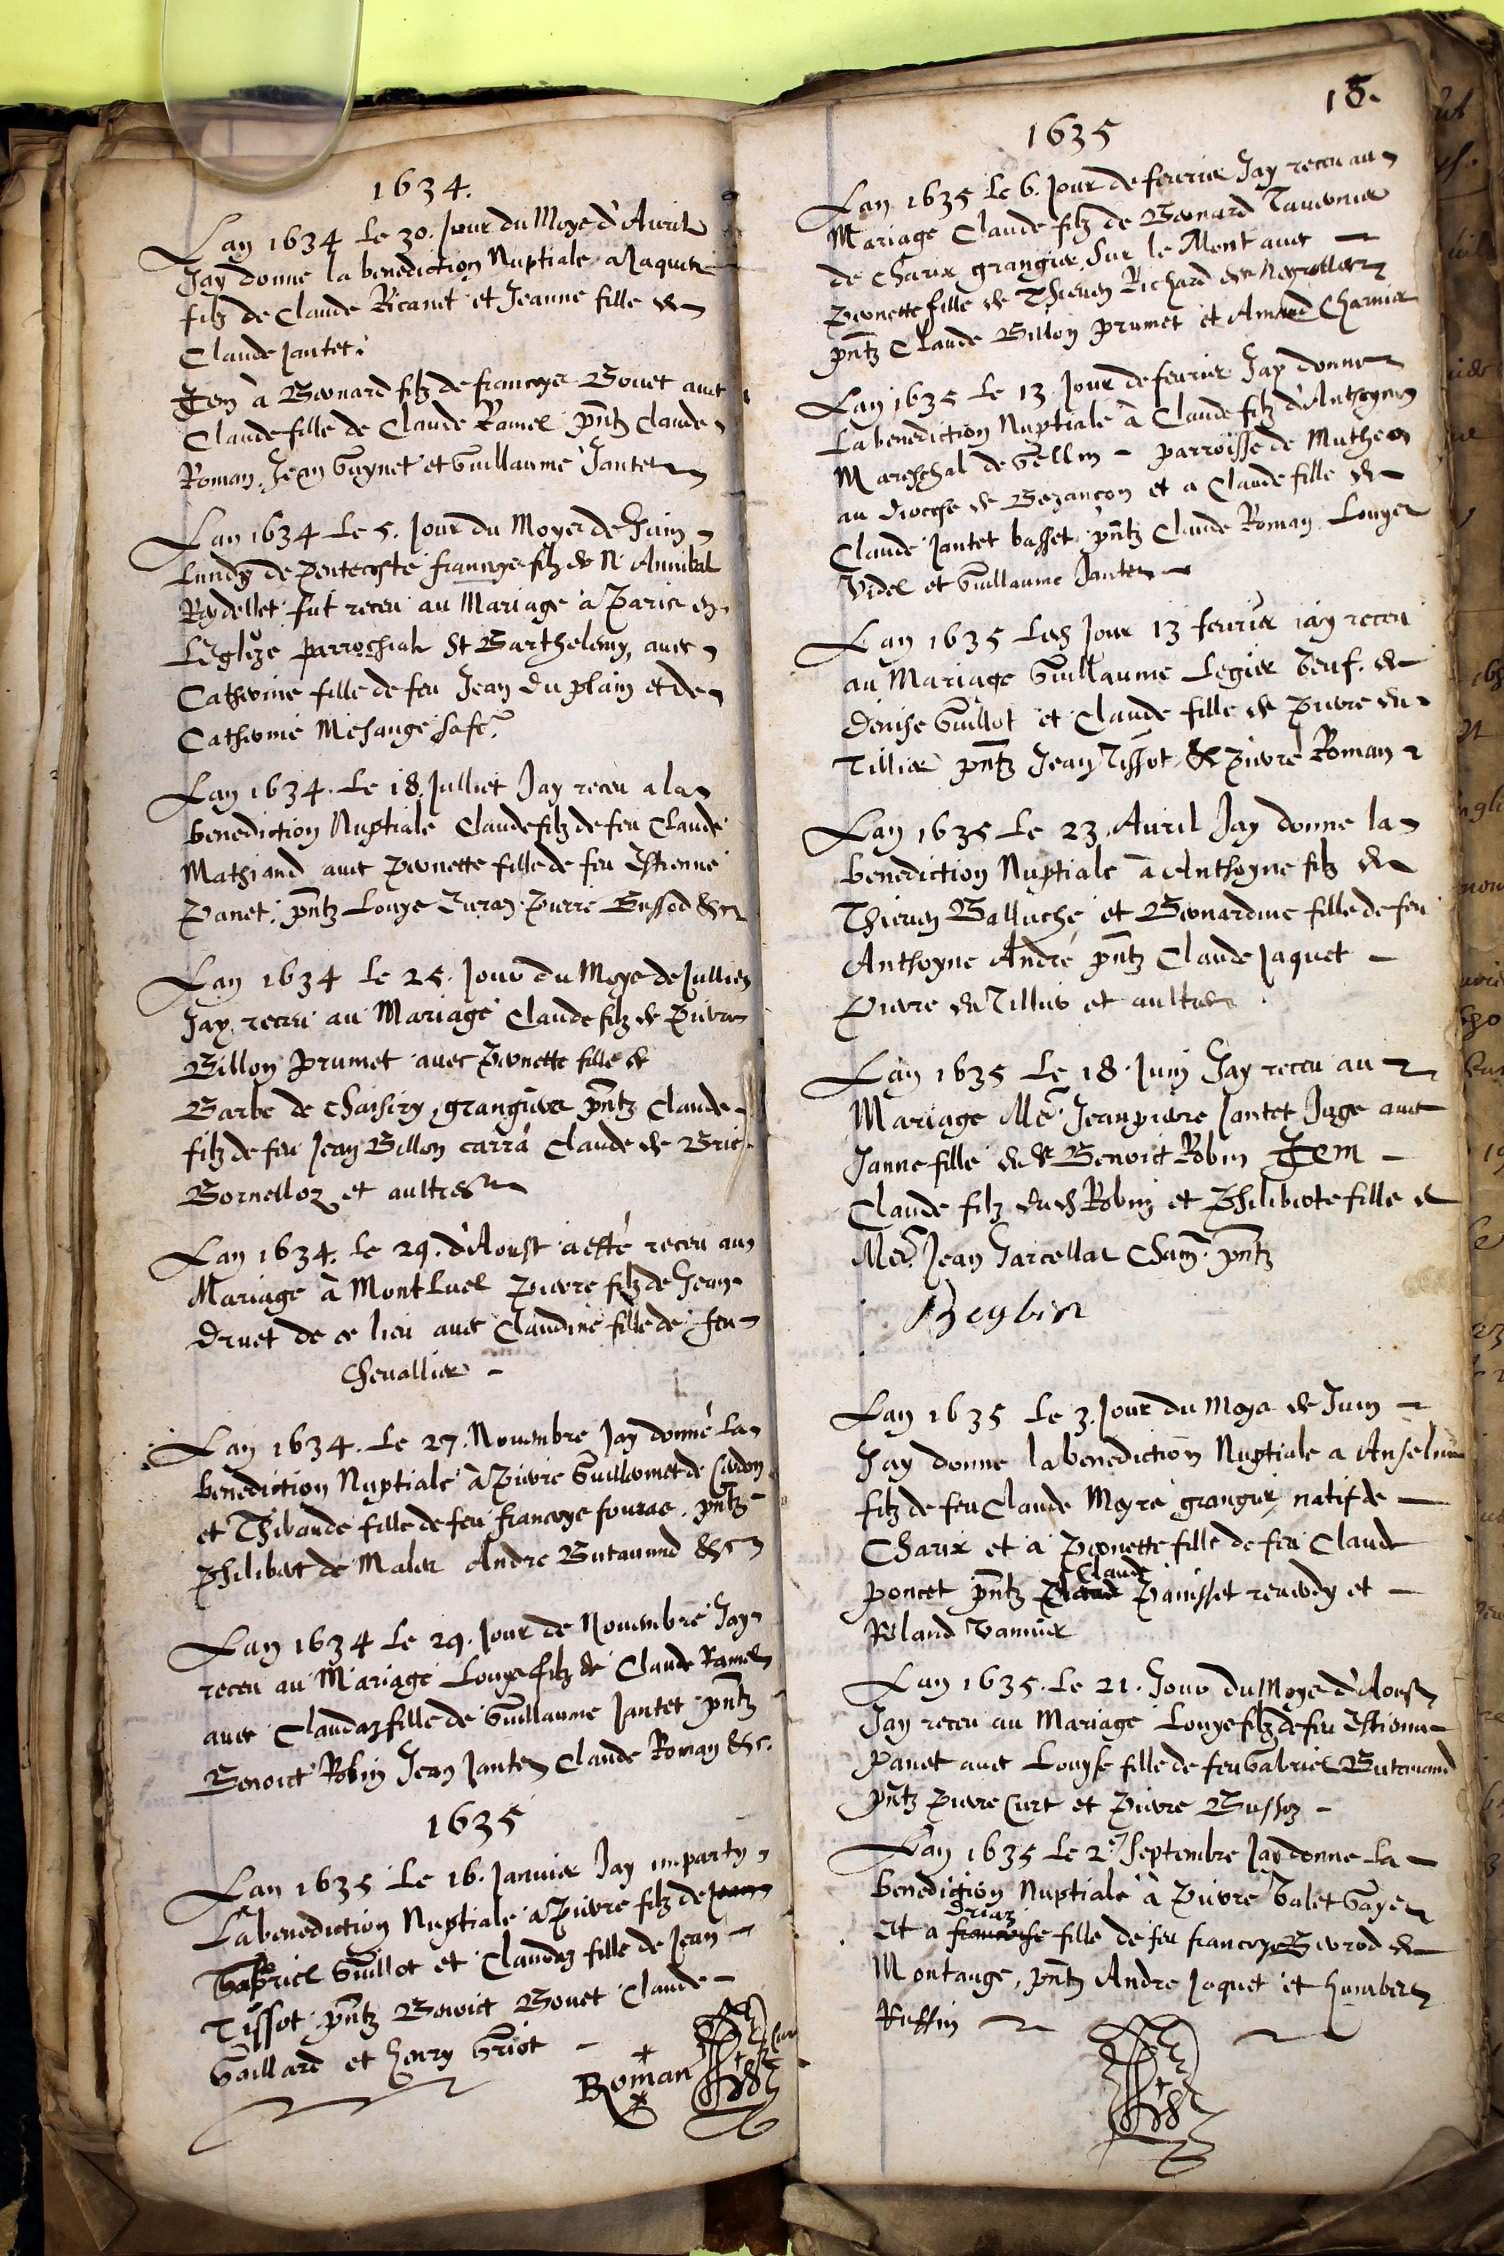 1634.
Lan 1634 Le 30. Jour du Moys d'Avril
Jay donne la benediction Nuptiale a Jaques
filz de Claude Ricanet et Jeanne fille de
Claude Jantet.
Item à Bernard filz de francoys Bouet avec
Claude fille de Claude Ramel pntz Claude
Roman Jean Guynet et Guillaume Jantet
Lan 1634 Le 5. Jour du Moys de Juin
Lundy de pentecoste francoys filz de N Annibal
Rydellet fut receu au Mariage a Paris en
Leglize parrochiale St Barthelemy avec
Catherine fille de feu Jean du plain et de
Catherine Mesange safe.
Lan 1634. Le 18. Jullet Jay receu a la
benediction Nuptiale Claude filz de feu Claude
Mathiand avec Pernette fille de feu Estienne
Panet. pntz Louys Pierre Bussod &c
Lan 1634 Le 25. Jour du Moys de Jullet
Jay receu au Mariage Claude filz de Pierre
Billon Prumet avec Pernette fille de
Barbe de Chaisiry, grangier pntz Claude
filz de feu Jean Billon carra Claude de Brie
Bornelloz et aultres
Lan 1634. Le 29. d'Aoust a esté receu au
Mariage à Montluel Pierre filz de Jean
Druet de ce lieu avec Claudine fille de feu
Chevallier
Lan 1634. Le 27. Novembre Jay donné La
benediction Nuptiale à Pierre Guillermet de Cerdon
et Thibaude fille de feu francoys fouras. pntz
Philibert de Malet Andre Butavand &c
Lan 1634 Le 29. Jour de Novembre Jay
receu au Mariage Louys filz de Claude Ramel
avec Claudaz fille de Guillaume Jantet pntz
Benoict Robin Jean Jantet Claude Roman &c.
1635
Lan 1635 Le 16. Janvier Jay imparty
La benediction Nuptiale a Pierre filz de Jean
Gabriel Guillot et Claudaz fille de Jean
Tissot pntz Benoict Bouet Claude
Gaillard et henry Griot
Roman
18.
1635
Lan 1635 Le 6. Jour de fevrier Jay receu au
Mariage Claude filz de Bernard Tavernier
de Charix grangier Sur le Mont avec
Pernette fille de Thieven Richard de
pntz Claude Billon Prumet et Amand Charnier
Lan 1635 Le 13 Jour de fevrier Jay donne
La benediction Nuptiale à Claude filz d'Anthoyne
Mareschal de Gellin parroisse de Muthe
au diocese de Bezancon et a Claude fille de
Claude Jantet basset pntz Claude Roman Louys
Videl et Guillaume Jantet
Lan 1635 Led Jour 13 fevrier iay receu
au Mariage Guillaume Legier veuf de
denise Guillot et Claude fille de Pierre du
Tillier pntz Jean Tissot & Pierre Roman
Lan 1635 Le 23. Avril Jay donne la
benediction Nuptiale à Anthoyne filz de
Thieven Balluche et Bernardine fille de feu
Anthoyne André pntz Claude Jaquet
Pierre du Tillier et aultres.
Lan 1635 Le 18. Juin Jay receu au
Mariage Me Jeanpierre Jantet Juge avec
Janne fille du Sr Benoict Robin Item
Claude filz dud Robin et Philiberte fille de
Me Jean Jarcellat Cham. pntz
Beybier
Lan 1635 Le 3. Jour du Moys de Juin
Jay donne la benediction Nuptiale a Anselme
filz de feu Claude Moyre grangier natif de
Charix et à Pernette fille de feu Claude
Poncet pntz Claude Panisset reverdy et
Roland Vannier
Lan 1635. Le 21. Jour du Moys d'Aoust
Jay receu au Mariage Louys filz de feu Estienne
Panet avec Louyse fille de feu Gabriel Butavand
pntz Pierre Curt et Pierre Bussoz
Lan 1635 Le 2e Septembre Jay donne La
benediction Nuptiale à Pierre Valet Gayer
Driaz
et a francoise fille de feu francoys Berod de
Montange, pntz Andre Jaquet et humbert
Reffin